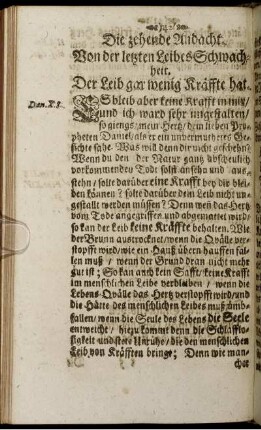 Die zehende Andacht.
Von der letzten Leibes Schwach-
heit.
Der Leib gar wenig Kräffte hat.
Dan. X. 8.
ES bleib aber keine Krafft in mir/
und ich ward sehr ungestalten/
so giengs/ mein Hertz/ dem lieben Pro-
pheten Daniel/ als er ein unvermuthetes Ge-
sichte sahe. Was will denn dir nicht geschehen?
Wenn du den der Natur gantz abscheulich
vorkommenden Todt solst ansehn und aus-
stehn/ solte darüber eine Krafft bey dir blei-
ben können? solte darüber dein Leib nicht un-
gestallt werden müssen? Denn wen das Hertz
vom Tode angegriffen und abgemattet wird/
so kan der Leib keine Kräffte behalten. Wie
der Brunn austrocknet/ wenn die Qvälle ver-
stopfft wird/ wie ein Hauß übern hauffen fal-
len muß/ wenn der Grund dran nicht mehr
gut ist; So kan auch kein Safft/ keine Krafft
im menschlichen Leibe verbleiben/ wenn die
Lebens-Qvälle das Hertz verstopfft wird/ und
die Hütte des menschlichen Leibes muß
fallen/ wenn die Seule des Lebens die Seele
entweicht/ hiezu kommt denn die Schlafflo-
sigkeit und stete Unruhe/ die den menschlichen
Leib von Kräfften bringe; Denn wie man-
cher